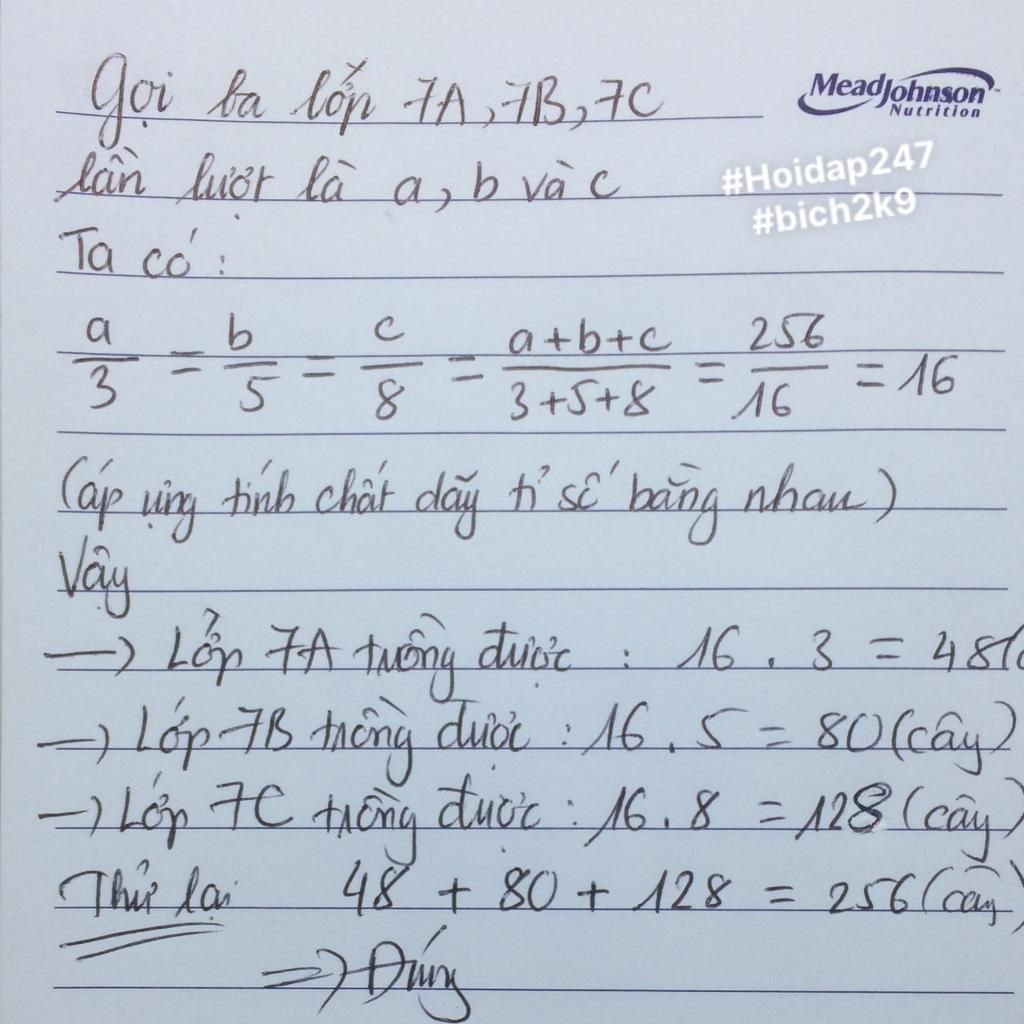 Gọi ba lớp 7A, 7B, 7C
MeadJohnson
Nutrition
lần lượt là a, b và c
#Hoidap247
#bich2k9
Ta có:
a/3 = b/5 = c/8 = a+b+c/3+5+8 = 256/16 = 16
(áp ụng tính chất dãy tỉ số bằng nhau)
Vậy
—) Lớp 7A trồng được : 16 . 3 = 48(c
—) Lớp 7B trồng được : 16 . 5 = 80(cây)
—) Lớp 7C trồng được : 16 . 8 = 128(cây)
Thử lại 48 + 80 + 128 = 256(cây)
=) Đúng